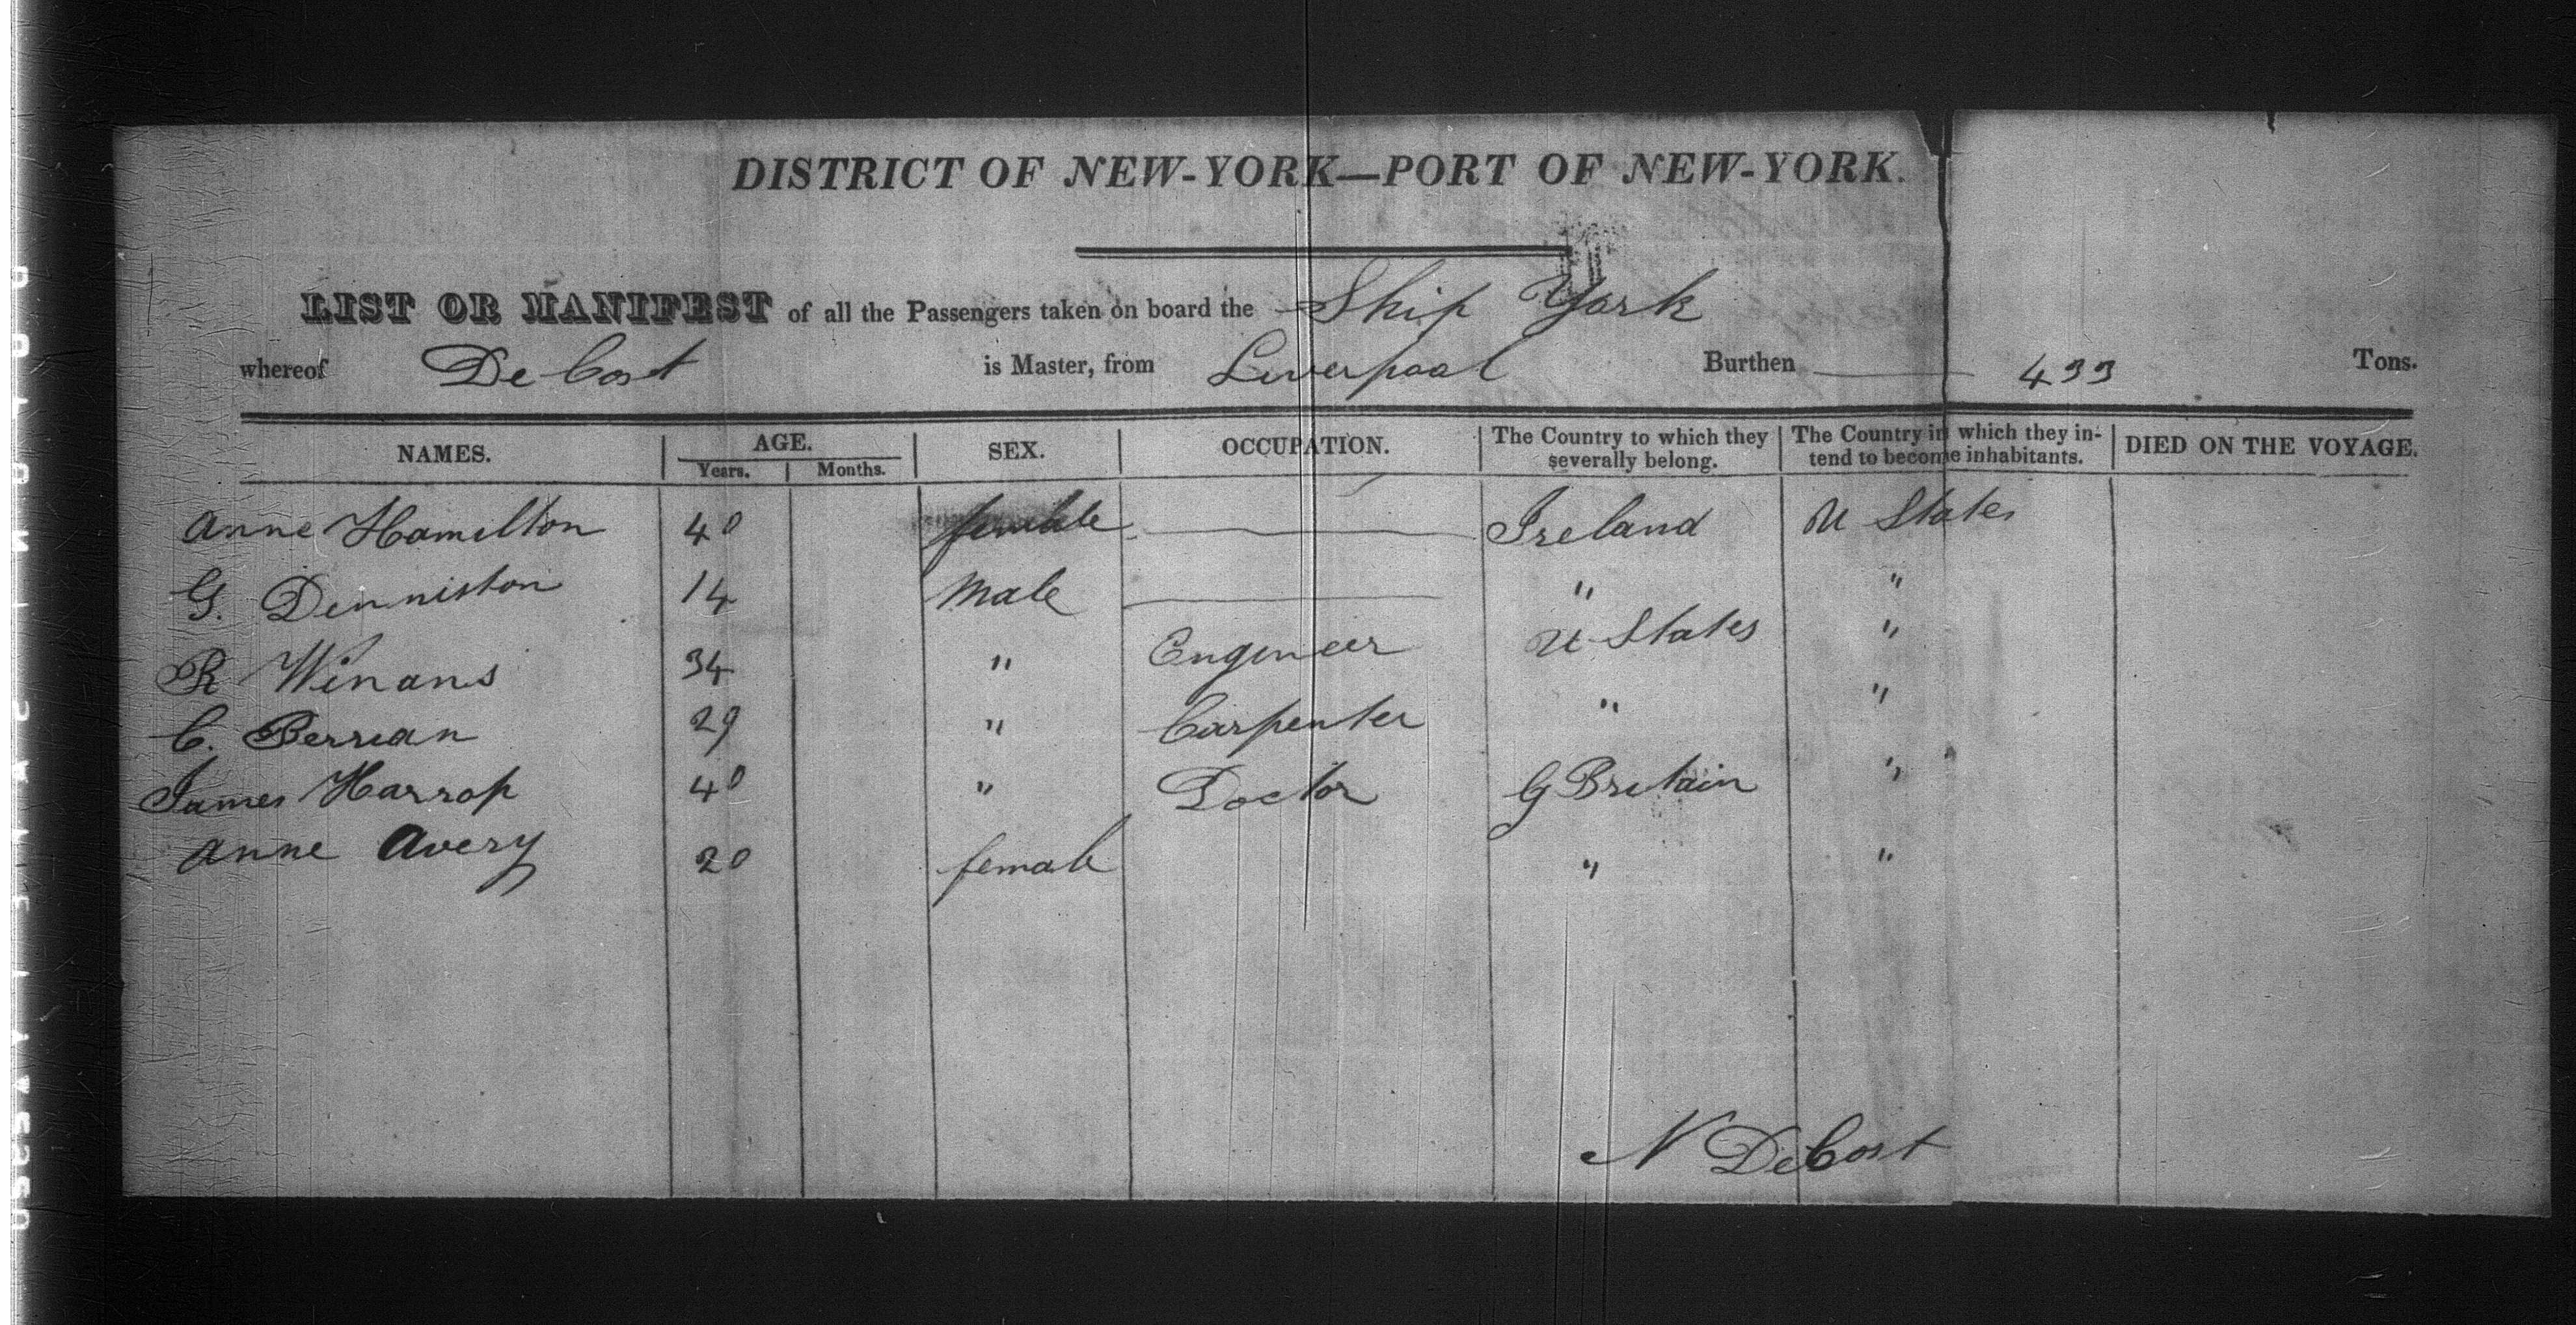 DISTRICT OF NEW-YORK—PORT OF NEW-YORK.
LIST OR MANIFEST of all the Passengers taken on board the Ship York
whereof De Cost is Master, from Liverpool Burthen 433 Tons.
NAMES. AGE. Years. Months. SEX. OCCUPATION. The Country to which they severally belong. The Country in which they intend to become inhabitants. DIED ON THE VOYAGE.
Anne Hamilton 40 female — Ireland U States
G. Denniston 14 Male — " "
R Winans 34 " Engineer U States "
C. Berrian 29 " Carpenter " "
James Harrop 40 " Doctor G Britain "
Anne Avery 20 female " "
N DeCost